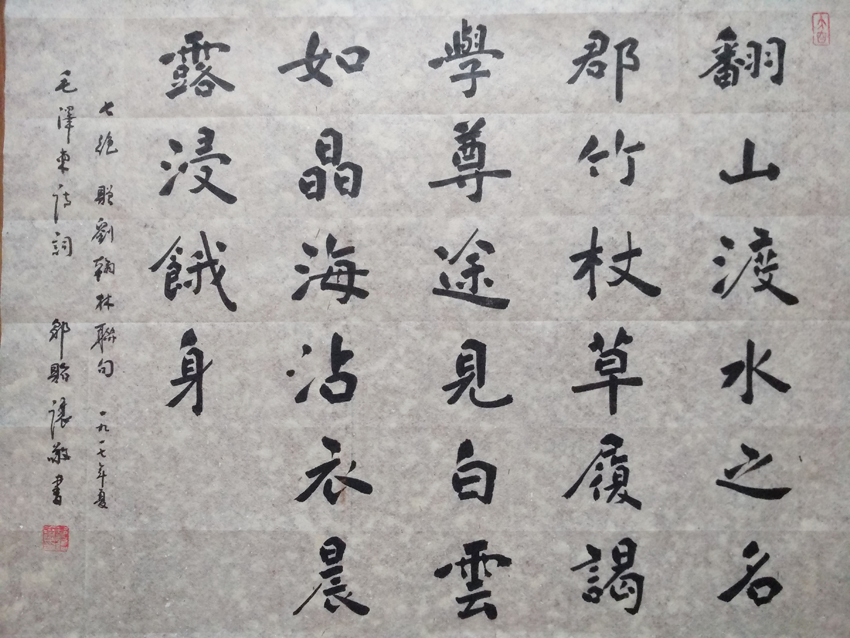 翻山渡水之名
郡竹杖草履謁
學尊途見白雲
如晶海沾衣晨
露浸餓身
七絕 贈劉翰林聯句 一九一七年夏
毛澤東詩詞 鄒貽謙敬書